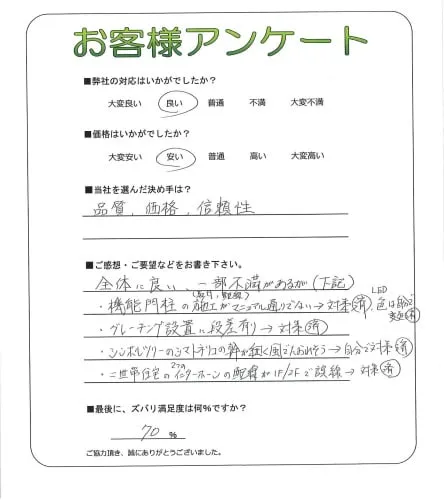 お客様アンケート
■弊社の対応はいかがでしたか？
大変良い 良い 普通 不満 大変不満
■価格はいかがでしたか？
大変安い 安い 普通 高い 大変高い
■当社を選んだ決め手は？
品質、価格、信頼性
■ご感想・ご要望などをお書き下さい。
全体に良い、一部不満があるが（下記）
・機能門柱の施工がマニュアル通りでない→対策済 LED 色は自分で
・グレーチング設置に段差有り→対策済
・シンボルツリーのシマトネリコの幹が細く風でたおれそう→自分で対策済
・二世帯住宅の2つのインターホーンの配線が1F/2Fで誤線→対策済
■最後に、ズバリ満足度は何％ですか？
70 ％
ご協力頂き、誠にありがとうございました。